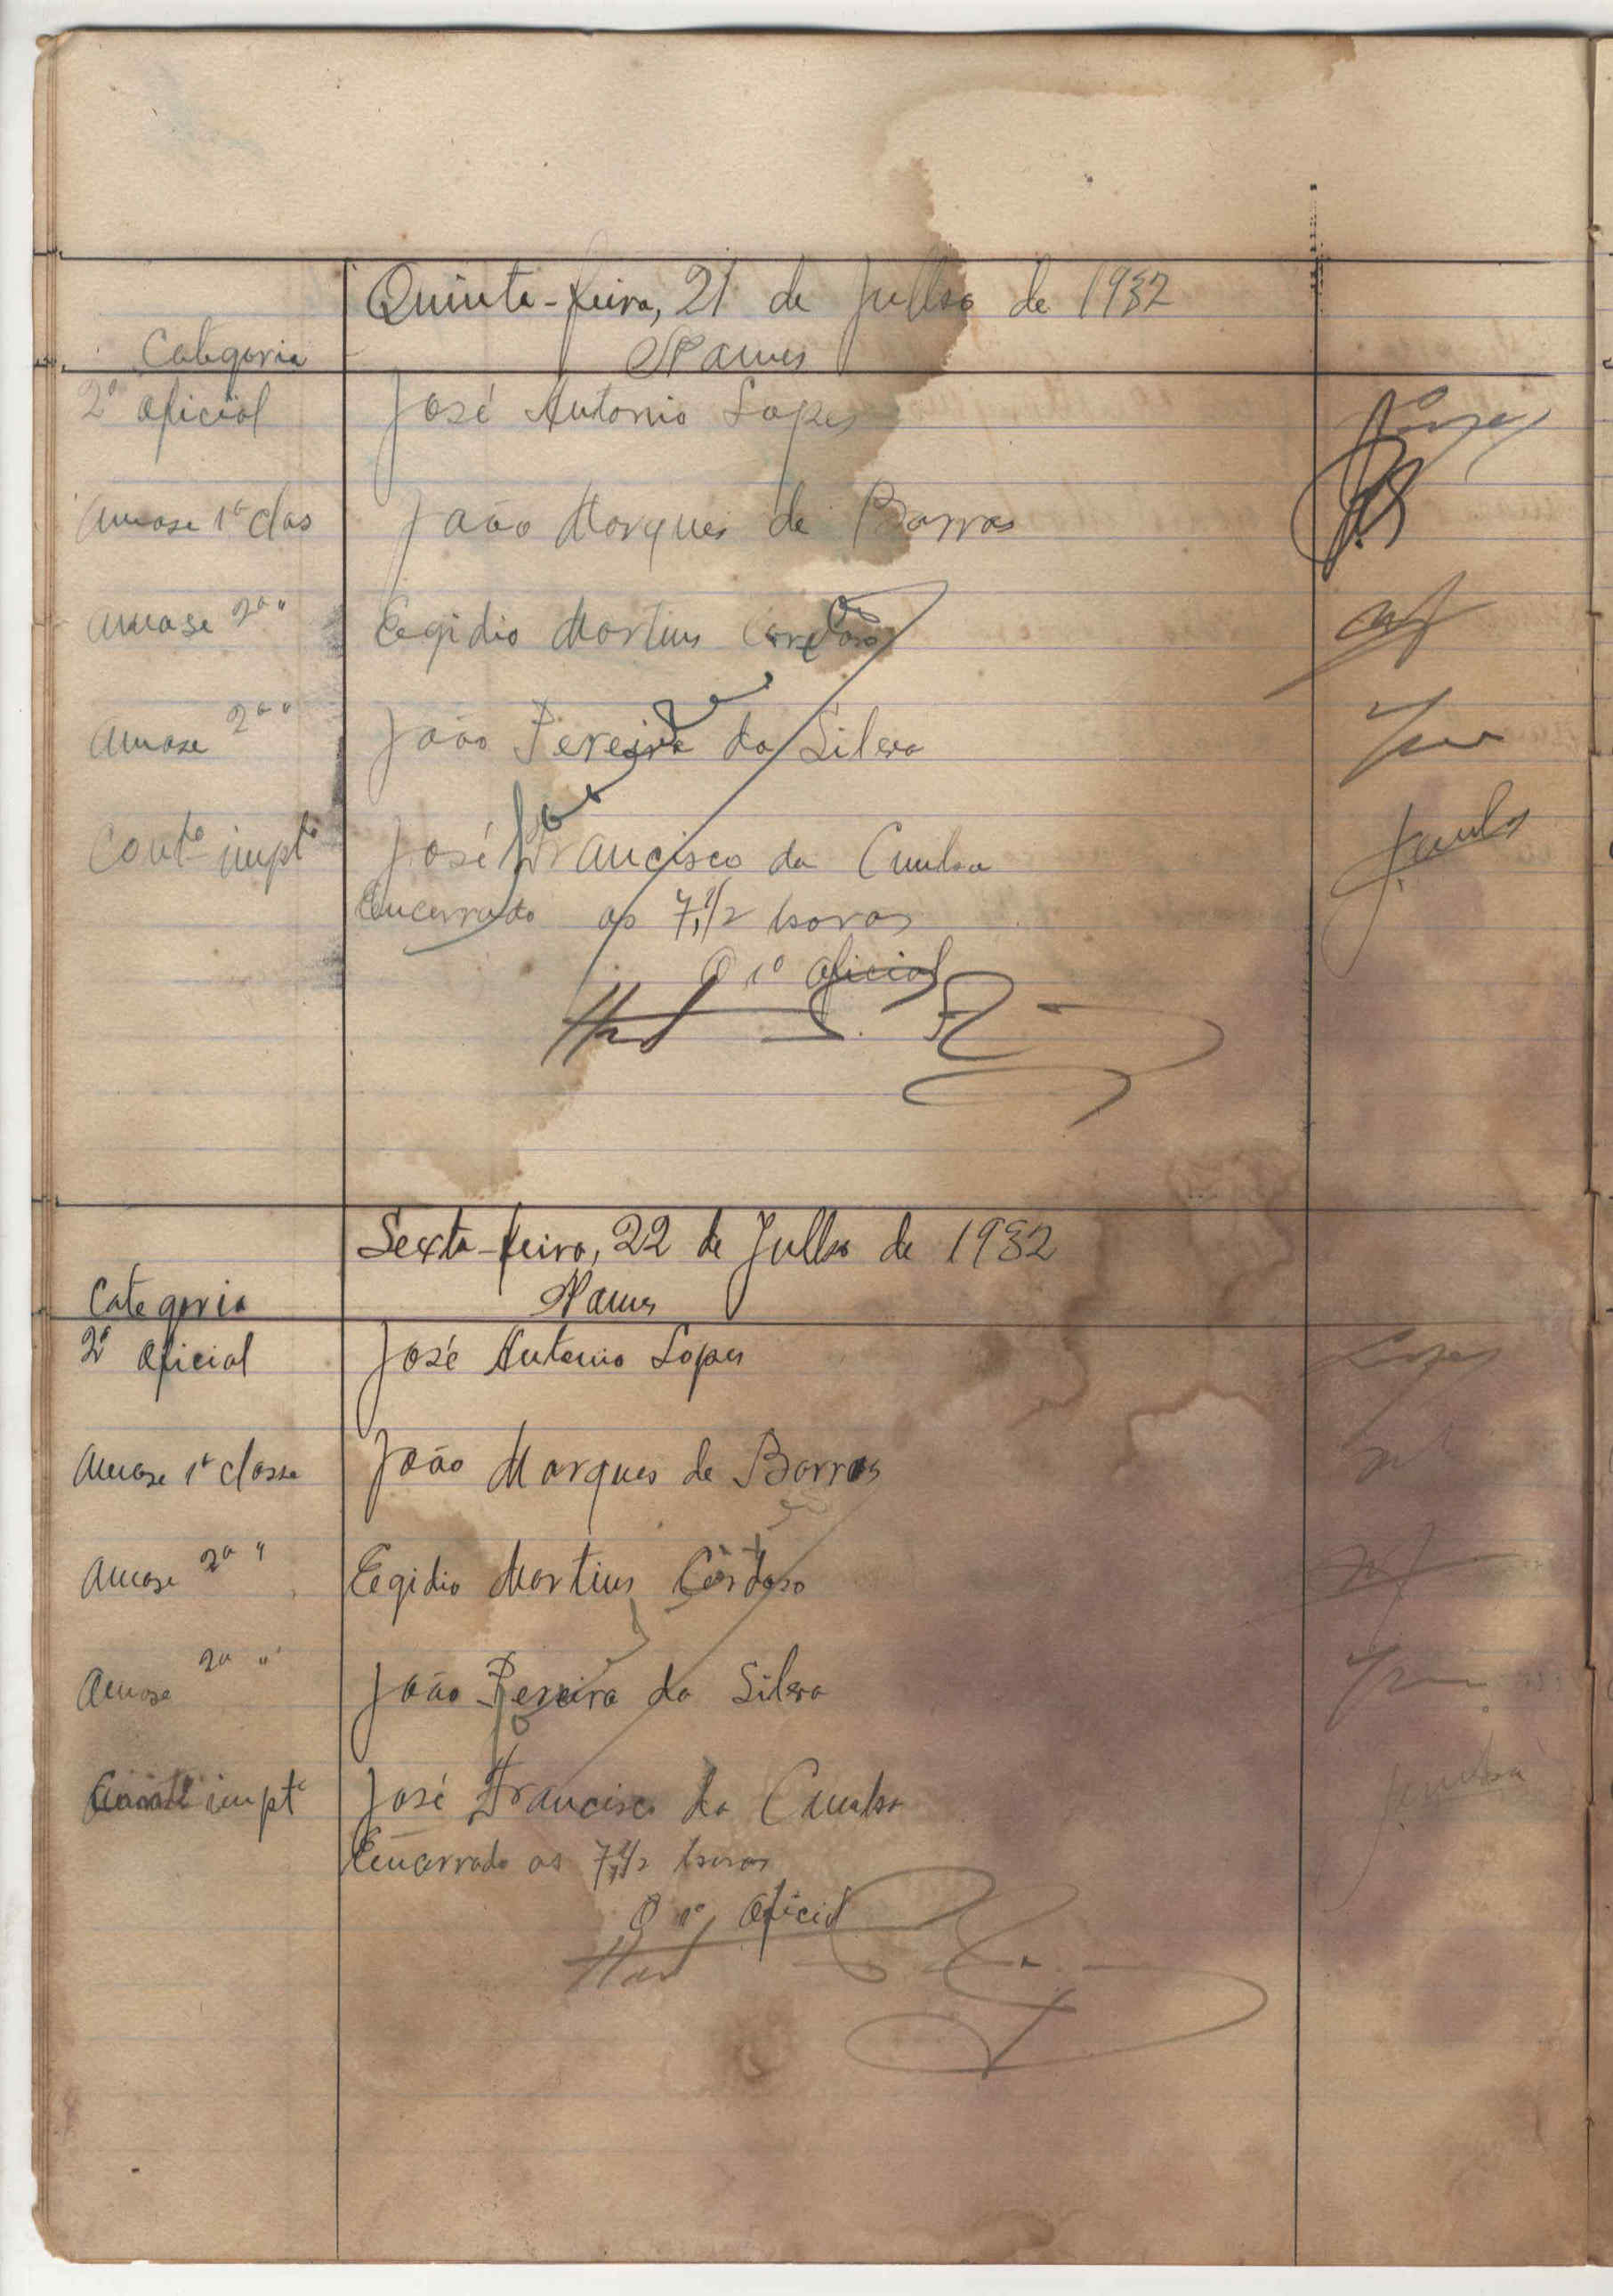 Quinta-feira, 21 de Julho de 1932
Categoria Nomes
2º Oficial José Antonio Lopes Lopes
Amase 1ª clas João Marques de Barros
Amase 2ª " Egidio Martins Cardoso
Amase 2ª " João Pereira da Silva
Contº impt José Francisco da Cunha J. Cunha
Encerrado as 7,1/2 horas
O 1º Oficial
Sexta-feira, 22 de Julho de 1932
Categoria Nomes
2º Oficial José Antonio Lopes Lopes
Amase 1ª classe João Marques de Barros
Amase 2ª " Egidio Martins Cardoso
Amase 2ª " João Pereira da Silva
impt José Francisco da Cunha J. Cunha
Encerrado as 7,1/2 horas
O 1º Oficial